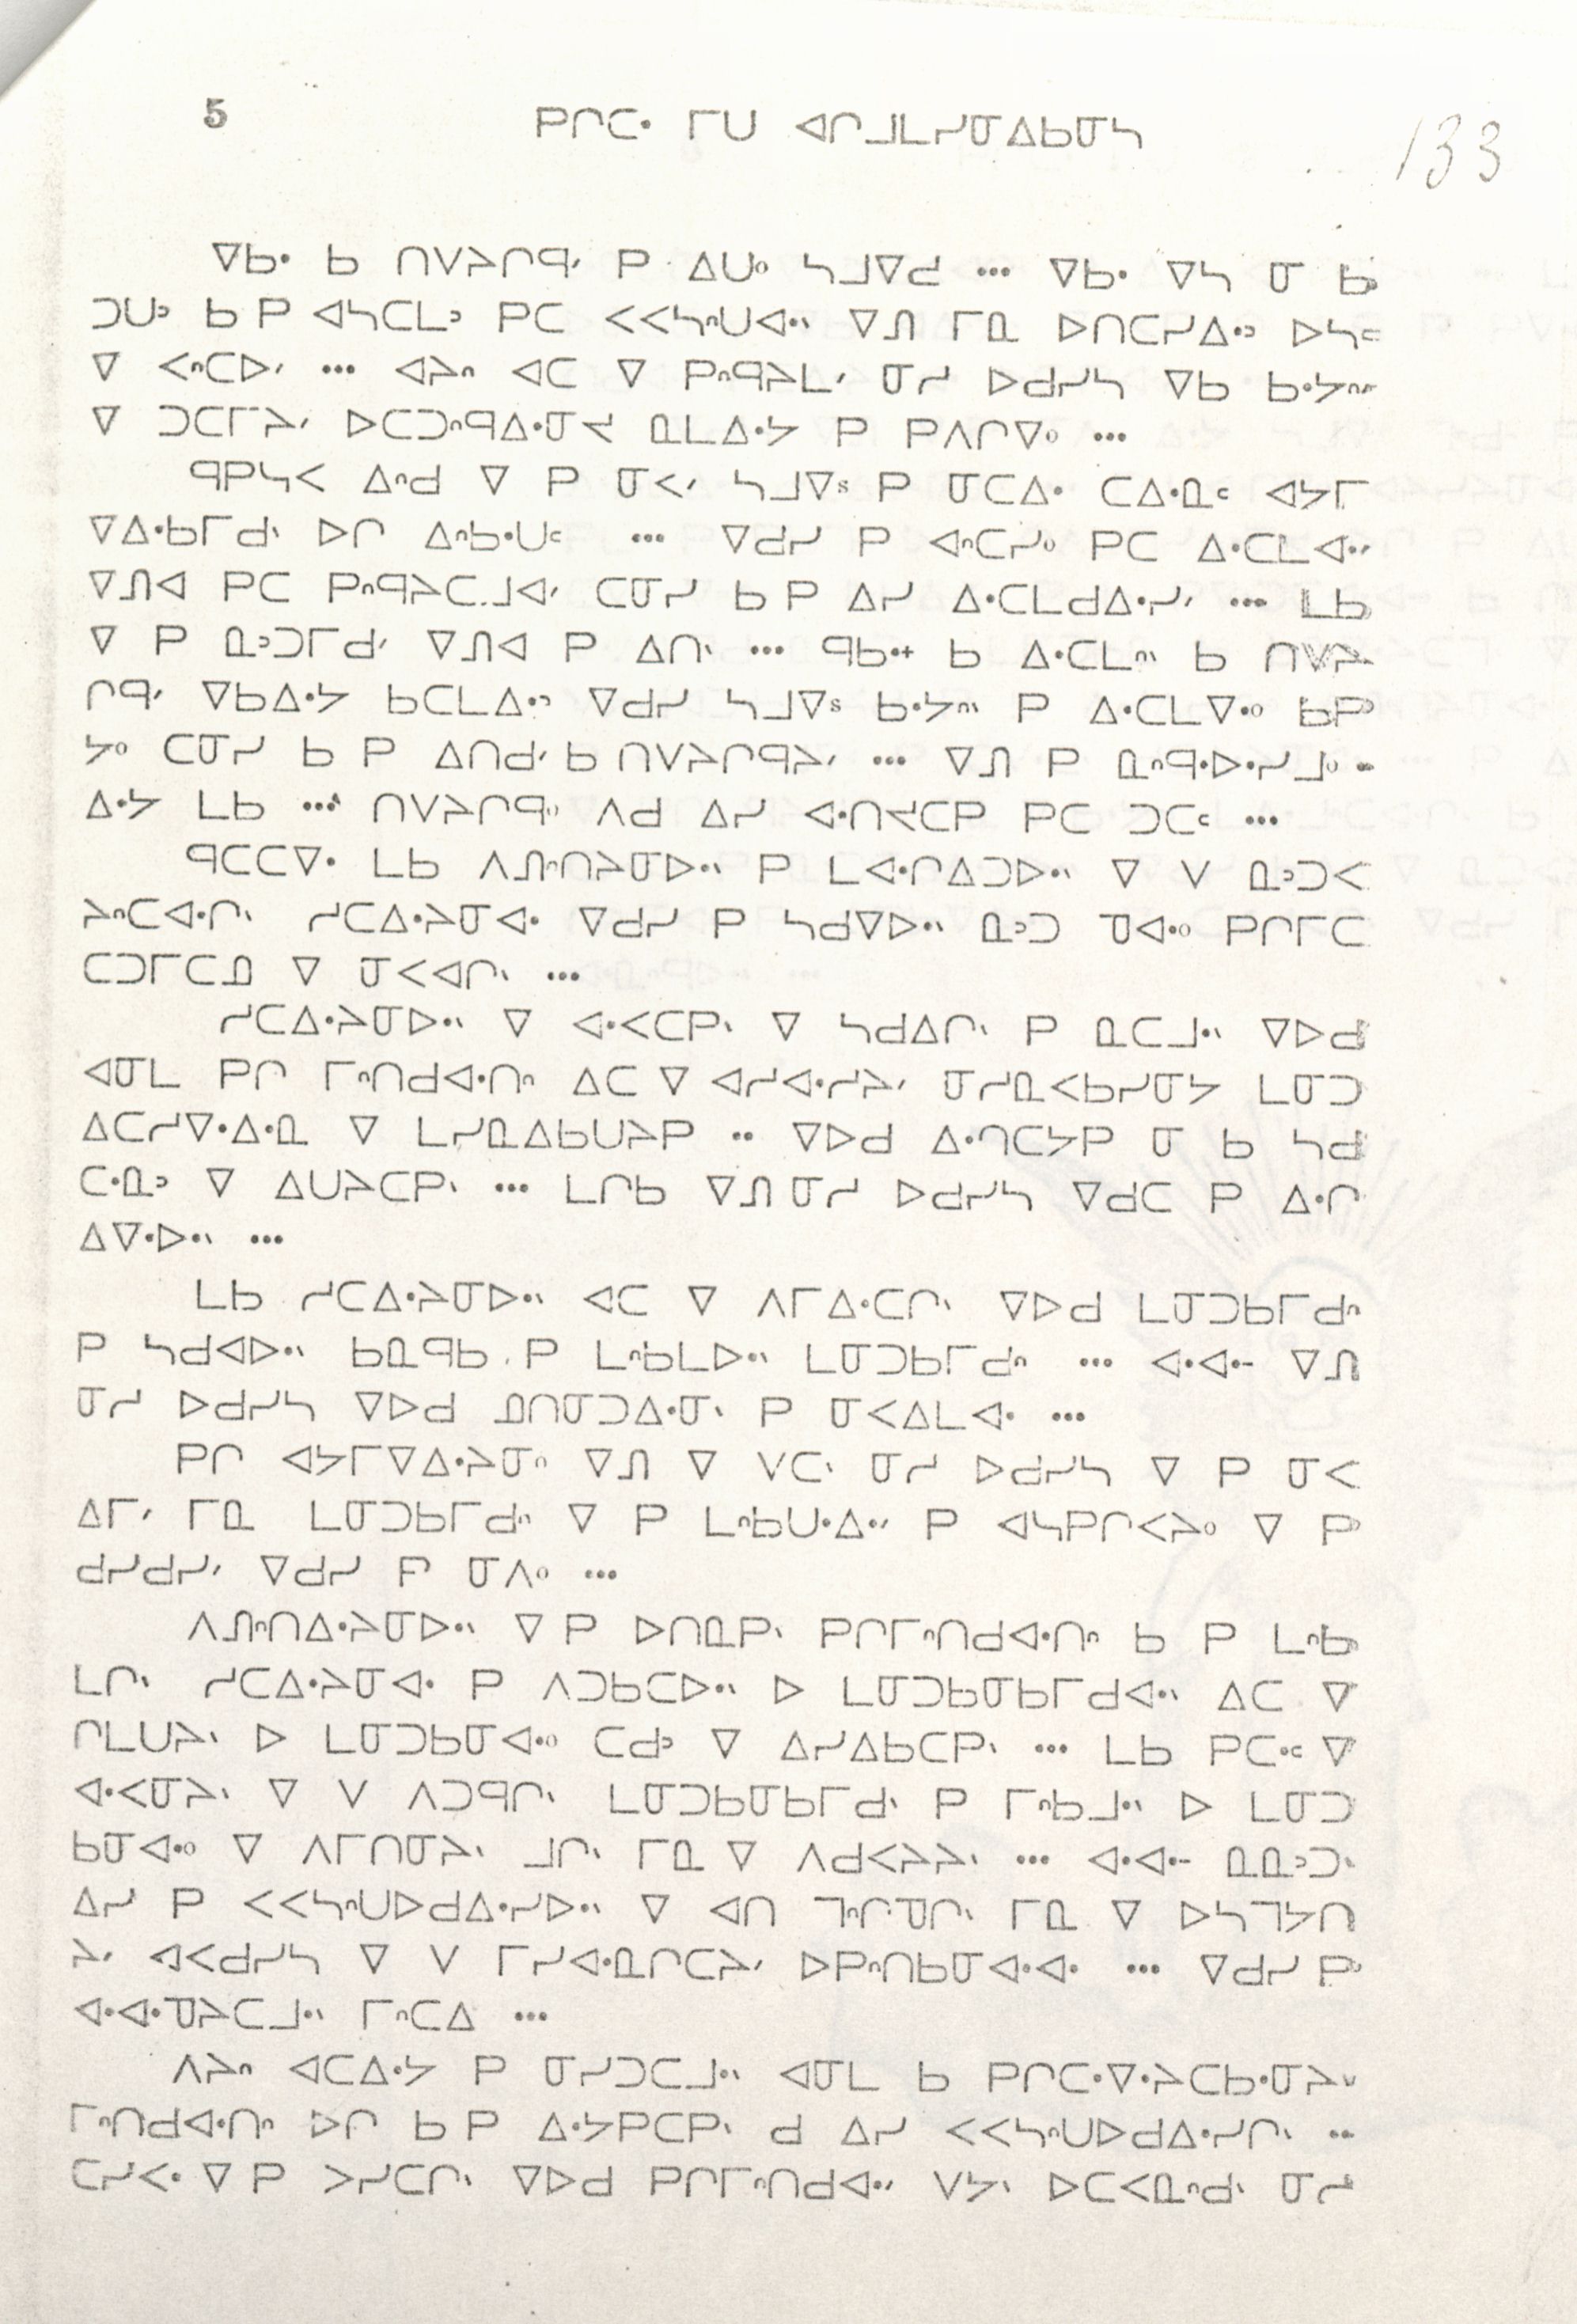 5 ᑭᒋᑕᐧ ᒥᑌ ᐊᒋᒧᒪᓯᓂᐃᑲᓂᓴ 133
ᐁᑲᐧ ᑲ ᑎᐯᔨᒋᑫᐟ ᑭ ᐃᑌᐤ ᓴᒧᐁᓓ ... ᐁᑲᐧ ᐁᓴ ᓂ ᑲ
ᑐᑌᐣ ᑲ ᑭ ᐊᓴᑕᒪᐣ ᑭᑕ ᐸᐸᓴᐢᑌᐊᐧᐠ ᐁᔑ ᒥᓇ ᐅᑎᑕᓯᐃᐧᐣ ᐅᓴᑦ
ᐁ ᐸᐢᑕᐅᐟ ... ᐊᔨᐢ ᐊᑕ ᐁ ᑭᐢᑫᔨᒪᐟ ᓂᓯ ᐅᑯᓯᓴ ᐁᑲ ᑲᐧᔭᐢᐠ
ᐁ ᑐᑕᒥᔨᐟ ᐅᑕᑐᐢᑫᐃᐧᓂᔪ ᓇᒪᐃᐧᔭ ᑭ ᑭᐱᒋᐁᐤ ...
ᑫᑭᓴᐸ ᐃᐢᑯ ᐁ ᑭ ᓂᐸᐟ ᓴᒧᐁᓬ ᑭ ᓂᑕᐃᐧ ᑕᐃᐧᓇᒼ ᐊᔭᒥ
ᐁᐃᐧᑲᒥᑯᐠ ᐅᒋ ᐃᐢᑲᐧᑌᒼ ... ᐁᑯᓯ ᑭ ᐊᐢᑕᓯᐤ ᑭᑕ ᐃᐧᑕᒪᐊᐧᐟ
ᐁᔑᐊ ᑭᑕ ᑭᐢᑫᔨᑕᒧᐊᐟ ᑕᓂᓯ ᑲ ᑭ ᐃᓯ ᐃᐧᑕᒪᑯᐃᐧᓯᐟ ... ᒪᑲ
ᐁ ᑭ ᓇᐣᑐᒥᑯᐟ ᐁᔑᐊ ᑭ ᐃᑎᐠ ... ᑫᑲᐧᐩ ᑲ ᐃᐧᑕᒪᐢᐠ ᑲ ᑎᐯᔨ
ᒋᑫᐟ ᐁᑲᐃᐧᔭ ᑲᑕᒪᐃᐧᐣ ᐁᑯᓯ ᓴᒧᐁᓬ ᑲᐧᔭᐢᐠ ᑭ ᐃᐧᑕᒪᐁᐧᐤ ᑲᑭ
ᔭᐤ ᑕᓂᓯ ᑲ ᑭ ᐃᑎᑯᐟ ᑲ ᑎᐯᔨᒋᑫᔨᐟ ... ᐁᔑ ᑭ ᓇᐢᑫᐧᐅᐧᓯᒧᐤ -
ᐃᐧᔭ ᒪᑲ ... ᑎᐯᔨᒋᑫᐤ ᐱᑯ ᐃᓯ ᐊᐧᑎᔪᑕᑭ ᑭᑕ ᑐᑕᒼ ...
ᑫᑕᑕᐁᐧ ᒪᑲ ᐱᔑᐢᑎᔨᓂᐅᐧᐠ ᑭ ᒪᐊᐧᒋᐃᑐᐅᐧᐠ ᐁ ᐯ ᓇᐣᑐᐸ
ᔨᐢᑕᐊᐧᒋᐠ ᓯᑕᐃᐧᔨᓂᐊᐧ ᐁᑯᓯ ᑭ ᓴᑯᐁᐅᐧᐠ ᓇᐣᑐ ᓀᐊᐧᐤ ᑭᒋᒥᑕ
ᑕᑐᒥᑕᓄ ᐁ ᓂᐸᐊᒋᐠ ...
ᓯᑕᐃᐧᔨᓂᐅᐧᐠ ᐁ ᐊᐧᐸᑕᑭᐠ ᐁ ᓴᑯᐃᒋᐠ ᑭ ᓇᑕᒧᐧᐠ ᐁᐅᑯ
ᐊᓂᒪ ᑭᒋ ᒥᐢᑎᑯᐊᐧᑎᐢ ᐃᑕ ᐁ ᐊᓯᐊᐧᓯᔨᐟ ᓂᓯᓇᐸᑲᓯᓂᔭ ᒪᓂᑐ
ᐃᑕᓯᐁᐧᐃᐧᓇ ᐁ ᒪᓯᓇᐃᑲᑌᔨᑭ .. ᐁᐅᑯ ᐃᐧᒉᑕᔭᑭ ᓂ ᑲ ᓴᑯ
ᑕᐧᓇᐣ ᐁ ᐃᑌᔨᑕᑭᐠ ... ᒪᒋᑲ ᐁᔑ ᓂᓯ ᐅᑯᓯᓴ ᐁᑯᑕ ᑭ ᐃᐧᒋ
ᐃᐁᐧᐅᐧᐠ ...
ᒪᑲ ᓯᑕᐃᐧᔨᓂᐅᐧᐠ ᐊᑕ ᐁ ᐱᒥᐃᐧᑕᒋᐠ ᐁᐅᑯ ᒪᓂᑐᑲᒥᑯᐢ
ᑭ ᓴᑯᐊᐅᐧᐠ ᑲᓇᑫᑲ ᑭ ᒪᐢᑲᒪᐅᐧᐠ ᒪᓂᑐᑲᒥᑯᐢ ... ᐊᐧᐊᐧ- ᐁᔑ
ᓂᓯ ᐅᑯᓯᓴ ᐁᐅᑯ ᓅᑎᓂᑐᐃᐧᓂᐠ ᑭ ᓂᐸᐃᒪᐊᐧ ...
ᑭᒋ ᐊᔭᒥᐁᐃᐧᔨᓂᐤ ᐁᔑ ᐁ ᐯᑕᐠ ᓂᓯ ᐅᑯᓯᓴ ᐁ ᑭ ᓂᐸ
ᐃᒥᐟ ᒥᓇ ᒪᓂᑐᑲᒥᑯᐢ ᐁ ᑭ ᒪᐢᑲᑌᐧᐃᐧᐟ ᑭ ᐊᓴᑭᒋᐸᔨᐤ ᐁ ᑭ
ᑯᓯᑯᓯᐟ ᐁᑯᓯ ᑭ ᓂᐱᐤ ...
ᐱᔑᐢᑎᐃᐧᔨᓂᐅᐧᐠ ᐁ ᑭ ᐅᑎᓇᑭᐠ ᑭᒋᒥᐢᑎᑯᐊᐧᑎᐢ ᑲ ᑭ ᒪᐢᑲ
ᒪᒋᐠ ᓯᑕᐃᐧᔨᓂᐊᐧ ᑭ ᐱᑐᑲᑕᐅᐧᐠ ᐅ ᒪᓂᑐᑲᓂᑲᒥᑯᐊᐧᐠ ᐃᑕ ᐁ
ᒋᒪᑌᔨᐠ ᐅ ᒪᓂᑐᑲᓂᐊᐧᐤ ᑕᑯᐣ ᐁ ᐃᓯᐃᑲᑕᑭᐠ ... ᒪᑲ ᑭᑕᐧᒼ ᐁ
ᐊᐧᐸᓂᔨᐠ ᐁ ᐯ ᐱᑐᑫᒋᐠ ᒪᓂᑐᑲᓂᑲᒥᑯᐠ ᑭ ᒥᐢᑲᒧᐧᐠ ᐅ ᒪᓂᑐ
ᑲᓂᐊᐧᐤ ᐁ ᐱᒥᑎᓂᔨᐠ ᒧᒋᐠ ᒥᓇ ᐁ ᐱᑯᐸᔨᔨᐠ ... ᐊᐧᐊᐧ- ᓇᓇᐣᑐᐠ
ᐃᓯ ᑭ ᐸᐸᓴᐢᑌᐅᑯᐃᐧᓯᐅᐧᐠ ᐁ ᐊᑎ ᒣᐢᒋᓀᒋᐠ ᒥᓇ ᐁ ᐅᓴᒣᔭᑎ
ᔨᐟ ᐊᐸᑯᓯᓴ ᐁ ᐯ ᒥᓯᐊᐧᓇᒋᑕᔨᐟ ᐅᑭᐢᑎᑲᓂᐊᐧᐊᐧ ... ᐁᑯᓯ ᑭ
ᐊᐧᐊᐧᓀᔨᑕᒧᐧᐠ ᒥᐢᑕᐃ ...
ᐱᔨᐢ ᐊᑕᐃᐧᔭ ᑭ ᓂᓯᑐᑕᒧᐧᐠ ᐊᓂᒪ ᑲ ᑭᒋᑕᐧᐁᐧᔨᑕᑲᐧᓂᔨᐠ
ᒥᐢᑎᑯᐊᐧᑎᐢ ᐅᒋ ᑲ ᑭ ᐃᐧᔭᑭᑕᑭᐠ ᑯ ᐃᓯ ᐸᐸᓴᐢᑌᐅᑯᐃᐧᓯᒋᐠ ..
ᑕᓯᐸᐧ ᐁ ᑭ ᐳᓯᑕᒋᐠ ᐁᐅᑯ ᑭᒋᒥᐢᑎᑯᐊᐧᐟ ᐯᔭᐠ ᐅᑕᐸᓇᐢᑯᐠ ᓂᓯ